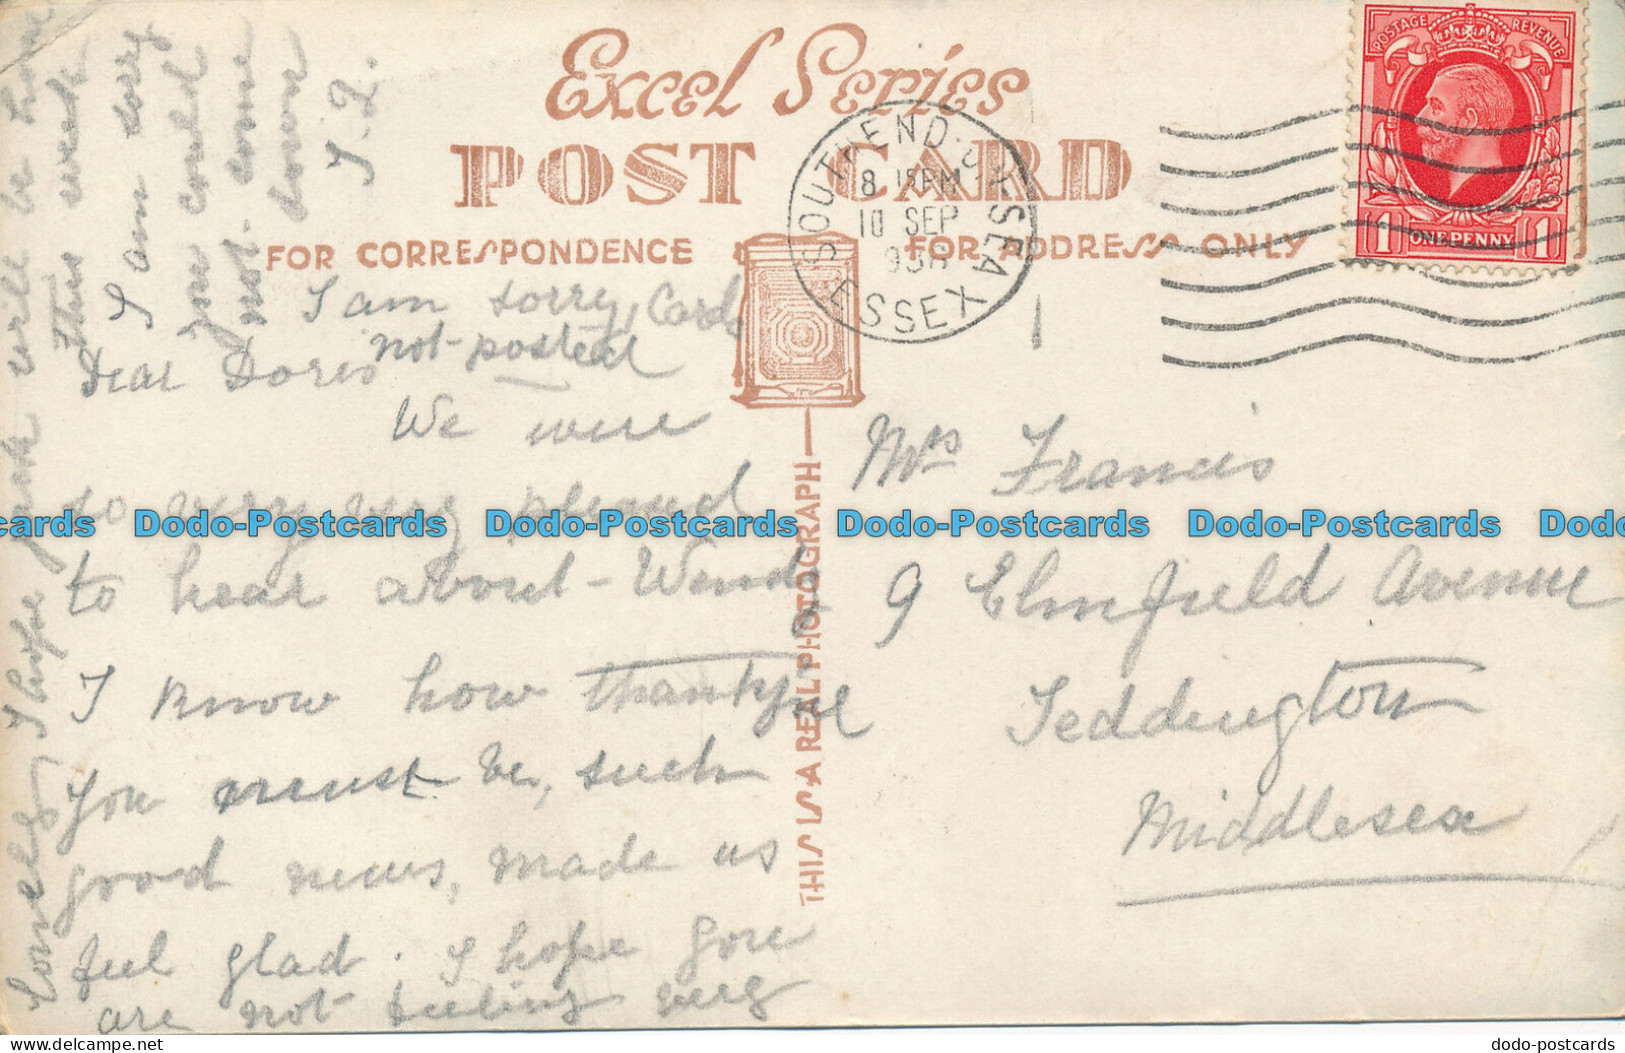 Excel Series
POST CARD
FOR CORRESPONDENCE
FOR ADDRESS ONLY
THIS IS A REAL PHOTOGRAPH
POSTAGE REVENUE
1 ONE PENNY 1
SOUTHEND-ON-SEA
8 PM
10 SEP
ESSEX
I am sorry, Card
not posted
Dear Doris
We were
so very very pleased
to hear about Wendy
I know how thankful
you must be, such
good news, made us
feel glad. I hope you
are not feeling very
lonely, I hope Jack will be home
this week
I am sorry
you could
not come
down
Mrs Francis
9 Elmfield Avenue
Teddington
Middlesex
cards Dodo-Postcards Dodo-Postcards Dodo-Postcards Dodo-Postcards Dodo
Powered by TCPDF (www.tcpdf.org)
dodo-postcards